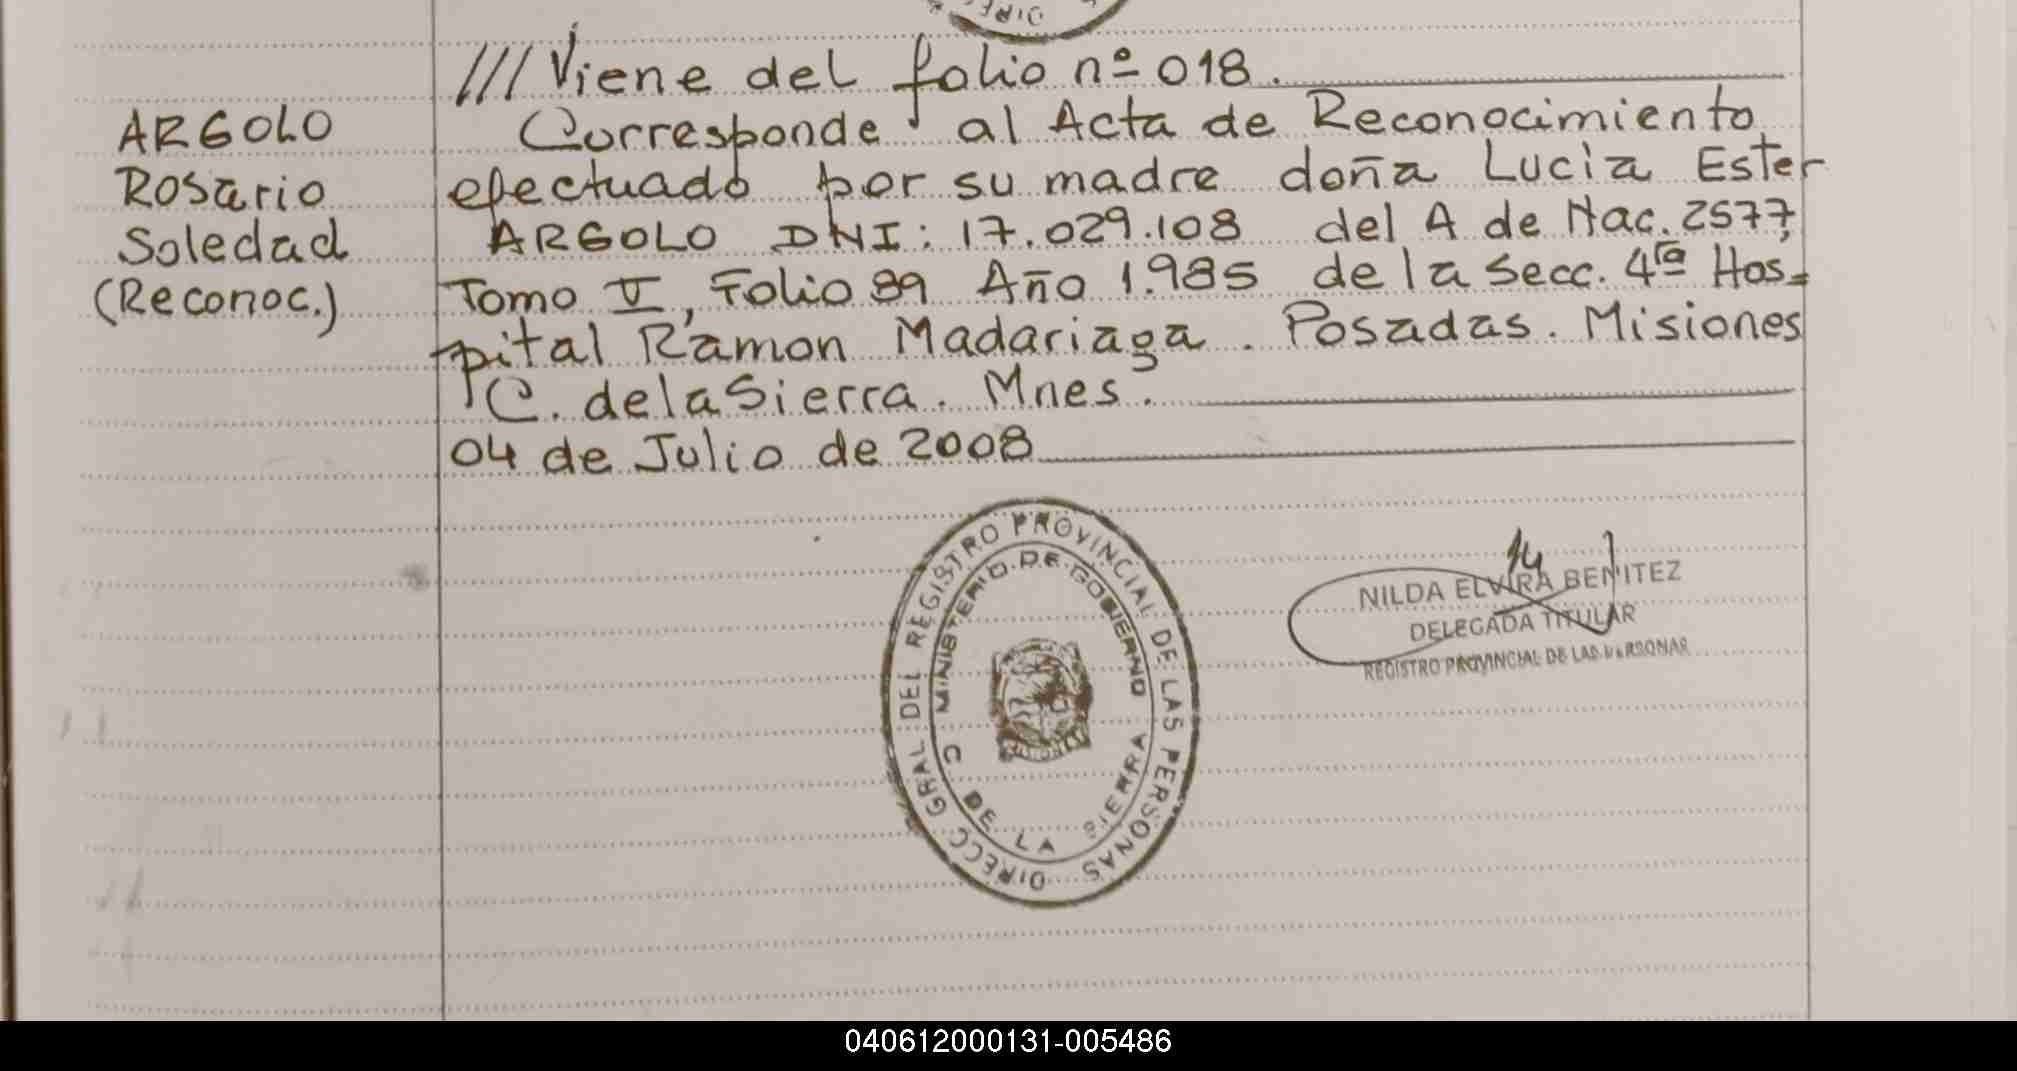 ///Viene del folio nº 018.
ARGOLO
Rosario
Soledad
(Reconoc.)
Corresponde al Acta de Reconocimiento
efectuado por su madre doña Lucia Ester
ARGOLO DNI: 17.029.108 del A de Nac. 2577,
Tomo V, Folio 89 Año 1.985 de la Secc. 4ta Hos=
pital Ramon Madariaga. Posadas. Misiones
C. de la Sierra. Mnes.
04 de Julio de 2008
DIRECC GRAL DEL REGISTRO PROVINCIAL DE LAS PERSONAS
MINISTERIO DE GOBIERNO
C DE LA SIERRA
NILDA ELVIRA BENITEZ
DELEGADA TITULAR
REGISTRO PROVINCIAL DE LAS PERSONAS
040612000131-005486